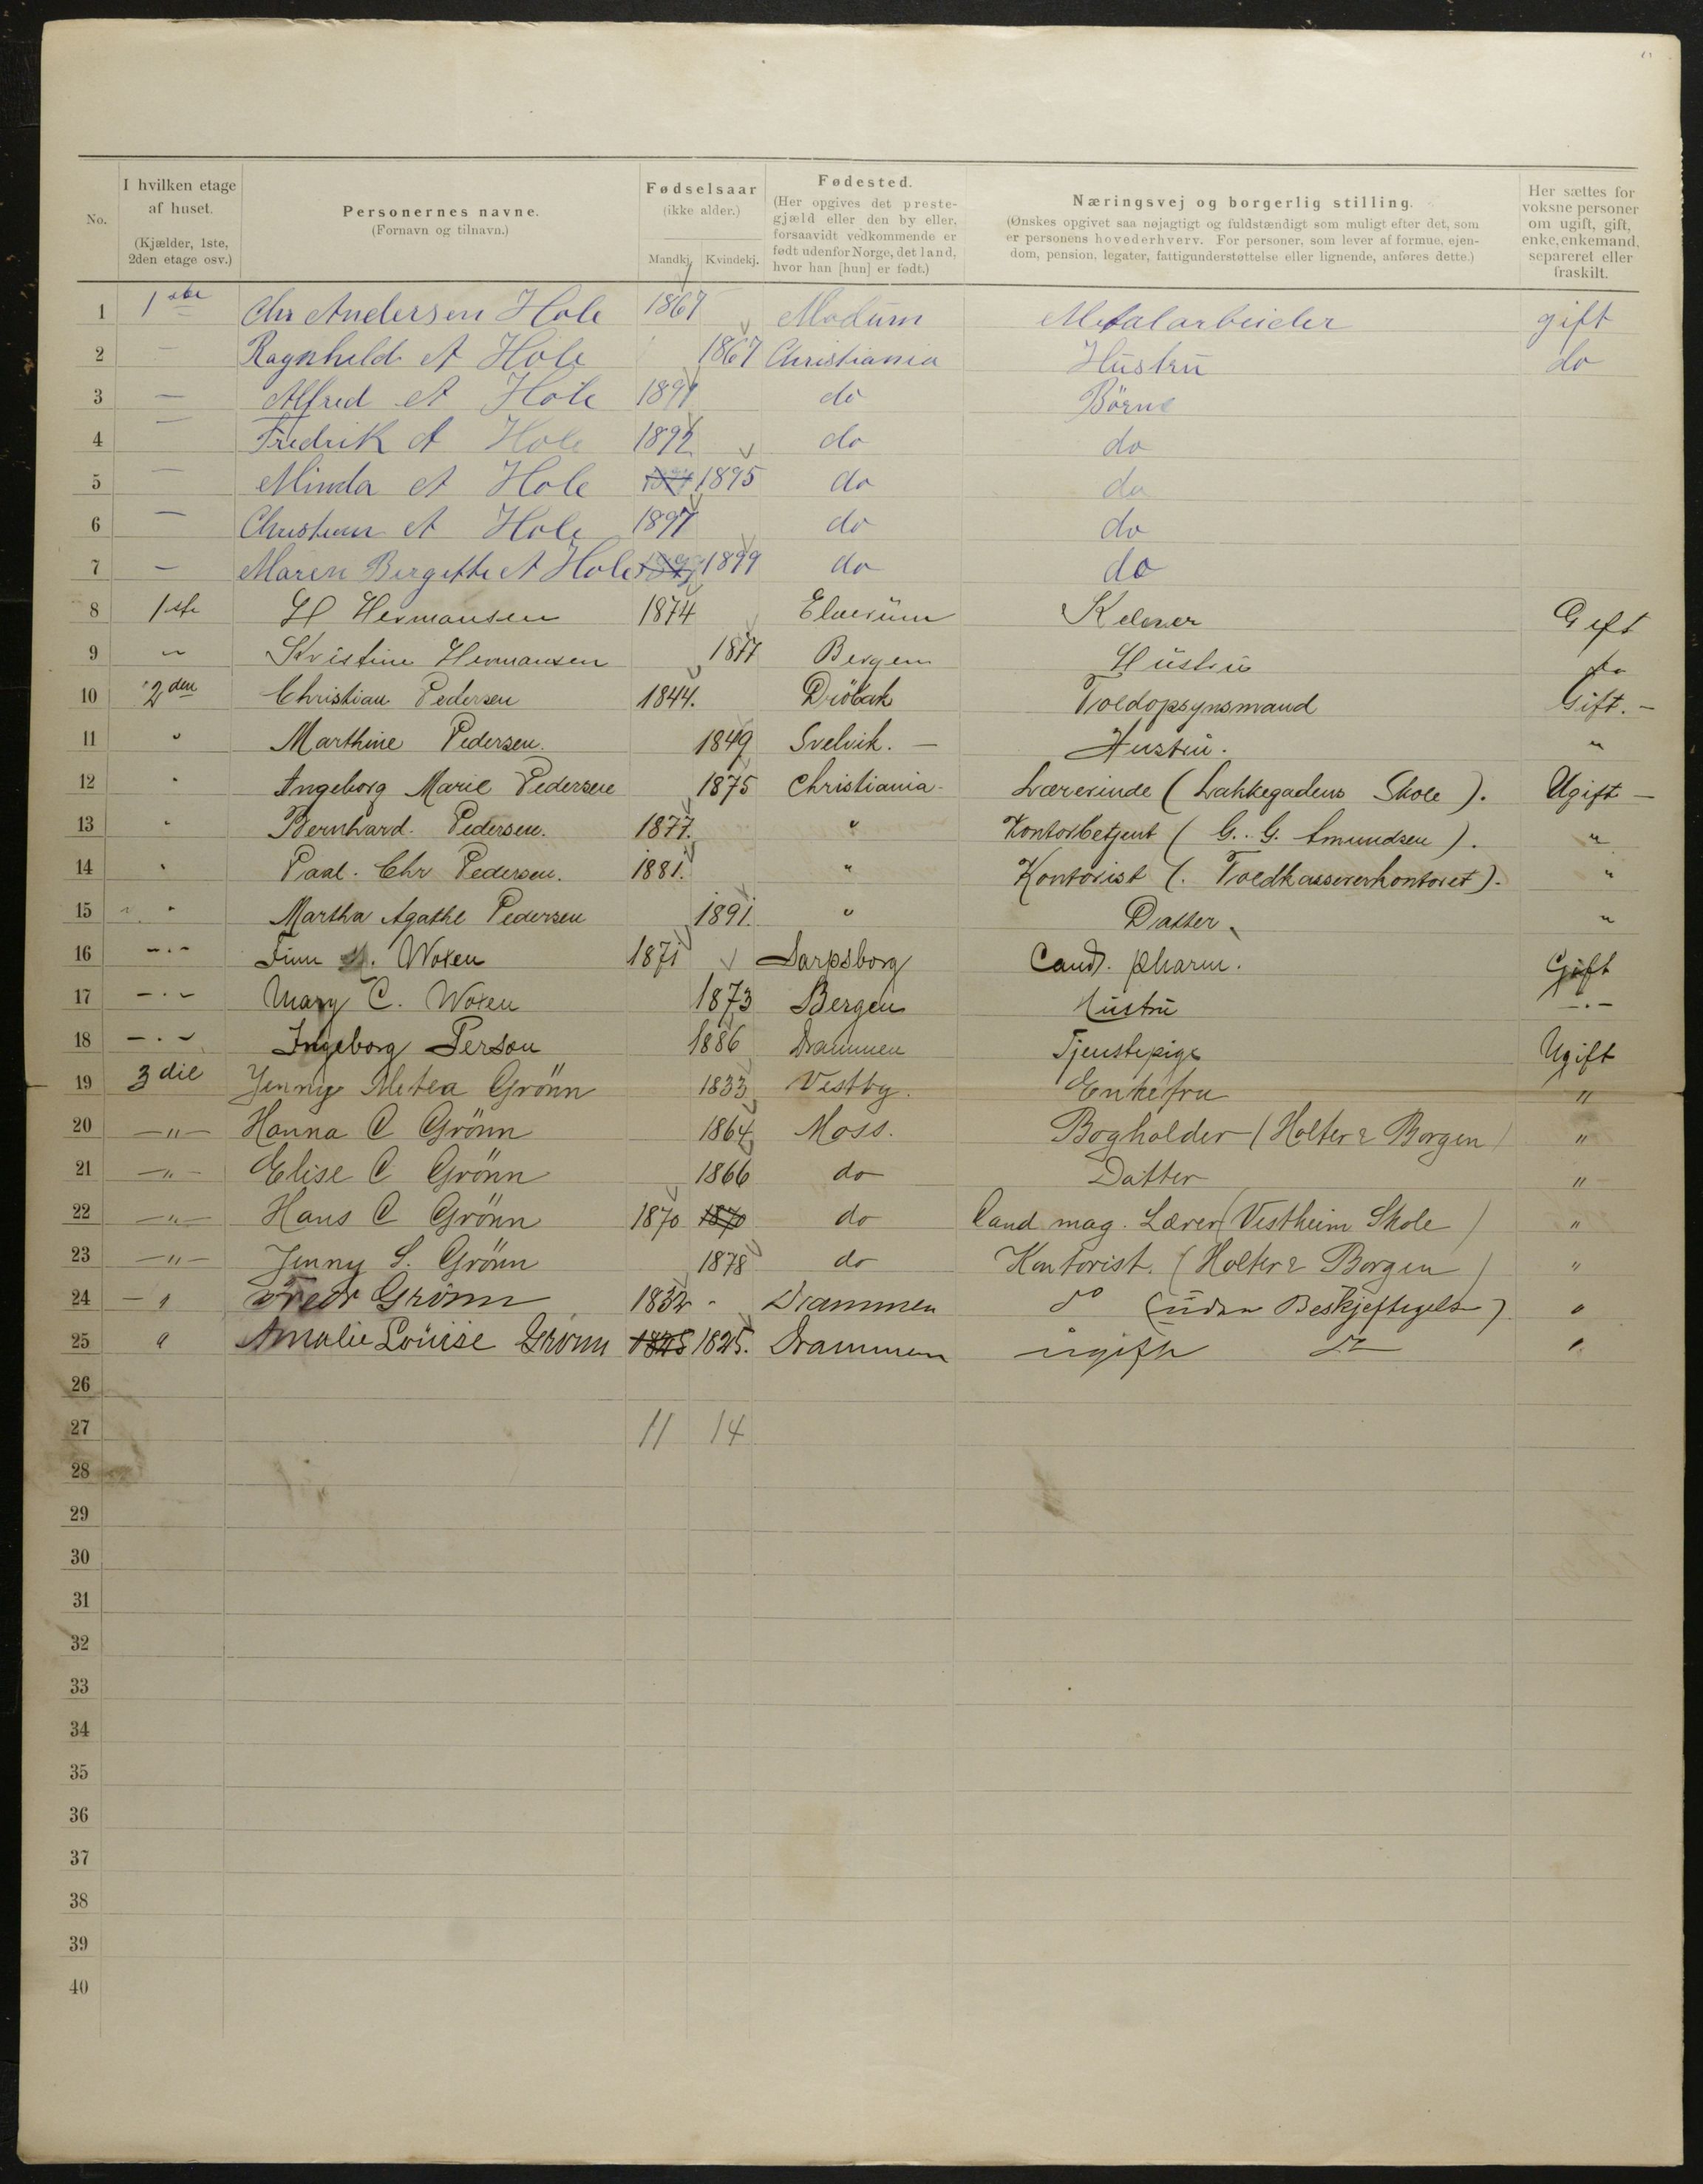 No.
I hvilken etage
af huset.
(Kjælder, 1ste,
2den etage osv.)
Personernes navne.
(Fornavn og tilnavn.)
Fødselsaar
(ikke alder.)
Mandkj. Kvindekj.
Fødested.
(Her opgives det preste-
gjæld eller den by eller,
forsaavidt vedkommende er
født udenfor Norge, det land,
hvor han [hun] er født.)
Næringsvej og borgerlig stilling.
(Ønskes opgivet saa nøjagtigt og fuldstændigt som muligt efter det, som
er personens hovederhverv. For personer, som lever af formue, ejen-
dom, pension, legater, fattigunderstøttelse eller lignende, anføres dette.)
Her sættes for
voksne personer
om ugift, gift,
enke, enkemand,
separeret eller
fraskilt.
1 1ste Chr Andersen Hole 1867 Modum Metalarbeider gift
2 — Ragnhild A Hole 1867 Christiania Hustru do
3 — Alfred A Hole 1891 do Börne
4 — Fredrik A Hole 1892 do do
5 — Minda A Hole 1895 do do
6 — Christian A Hole 1897 do do
7 — Maren Birgitte A Hole 1899 do do
8 1ste H Hermansen 1874 Elverum Kelner Gift
9 " Kristine Hermansen 1877 Bergen Hustru do
10 2den Christian Pedersen 1844. Dröbak Toldopsynsmand Gift. —
11 " Marthine Pedersen. 1849 Svelvik. — Hustru. "
12 " Ingeborg Marie Pedersen 1875 Christiania Lærerinde (Lakkegadens Skole). Ugift —
13 " Bernhard. Pedersen. 1877. " Kontorbetjent (G. G. Amundsen). "
14 " Paal. Chr Pedersen. 1881. " Kontorist (. Toldkassererkontoret). "
15 " Martha Agathe Pedersen 1891. " Datter. "
16 -"- Finn Woxen 1871 Sarpsborg Cand. pharm. Gift
17 -"- Mary C. Woxen 1873 Bergen Hustru -"-
18 -"- Ingeborg Person 1886 Drammen Tjenstepige Ugift
19 3die Jenny Metea Grönn 1833 Vestby. Enkefru "
20 —"— Hanna C Grönn 1864 Moss. Bogholder (Holter & Borgen) "
21 —"— Elise C Grönn 1866 do Datter "
22 —"— Hans C Grönn 1870 1870 do Cand mag. Lærer (Vestheim Skole) "
23 —"— Jenny S. Grönn 1878 do Kontorist. (Holter & Borgen) "
24 — " Fredr Grönn 1832 Drammen do (uden Beskjeftigelse) "
25 " Amalie Louise Grönn 1825 1825. Drammen ugift do "
26
27 11 14
28
29
30
31
32
33
34
35
36
37
38
39
40